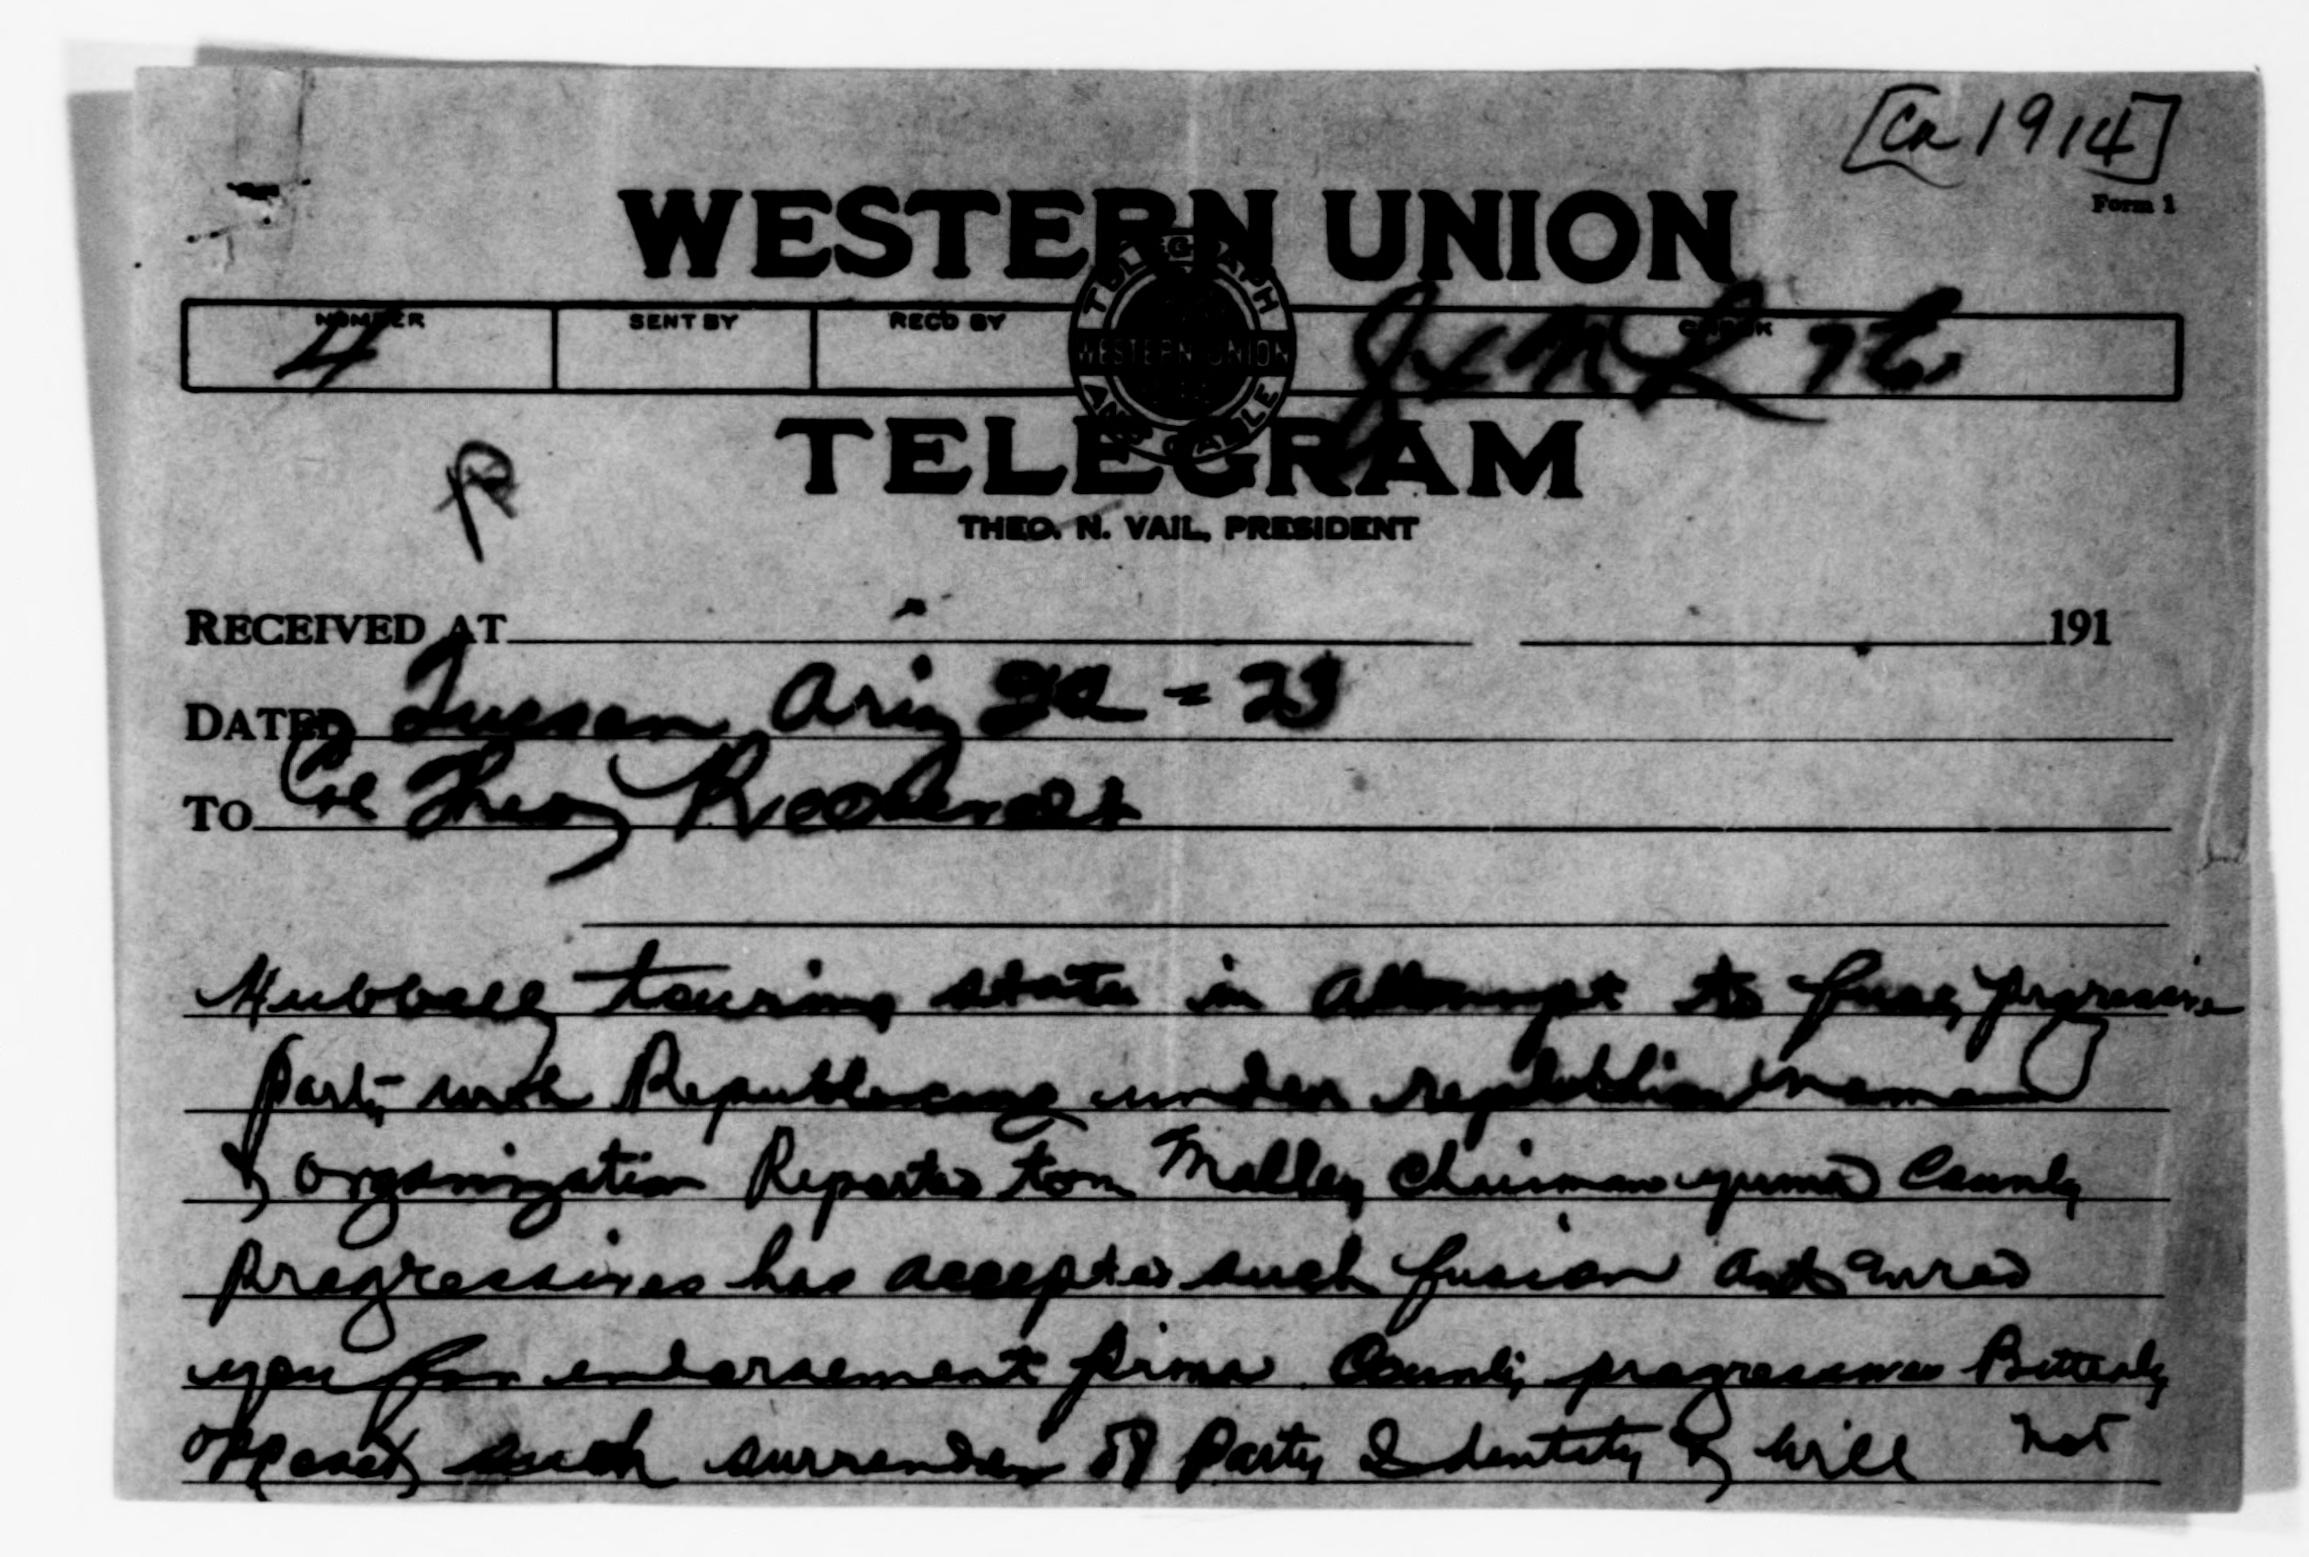 [Ca 1914]
Form 1
WESTERN UNION
TELEGRAPH WESTERN UNION AND CABLE
NUMBER SENT BY REC'D BY CHECK
4
TELEGRAM
THEO. N. VAIL, PRESIDENT
RECEIVED AT 191
DATED Tucson Ariz 22 - 23
TO Col Theo Roosevelt
Hubbell touring state in attempt to fuse progressive
party with Republicans under republican name
& organization Reported Tom Malley Chairman yuma County
Progressives has accepted such fusion and wired
you for endorsement pima County progressives Bitterly
opposed such surrender of Party Identity & will not